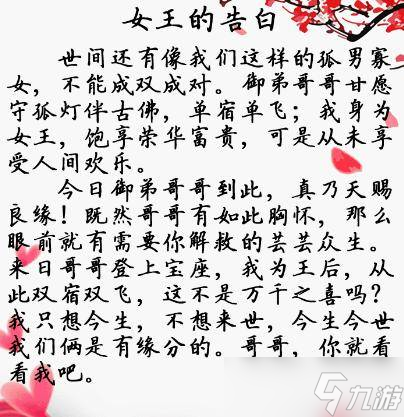 女王的告白
世间还有像我们这样的孤男寡
女，不能成双成对。御弟哥哥甘愿
守孤灯伴古佛，单宿单飞；我身为
女王，饱享荣华富贵，可是从未享
受人间欢乐。
今日御弟哥哥到此，真乃天赐
良缘！既然哥哥有如此胸怀，那么
眼前就有需要你解救的芸芸众生。
来日哥哥登上宝座，我为王后，从
此双宿双飞，这不是万千之喜吗？
我只想今生，不想来世，今生今世
我们俩是有缘分的。哥哥，你就看
看我吧。
九游